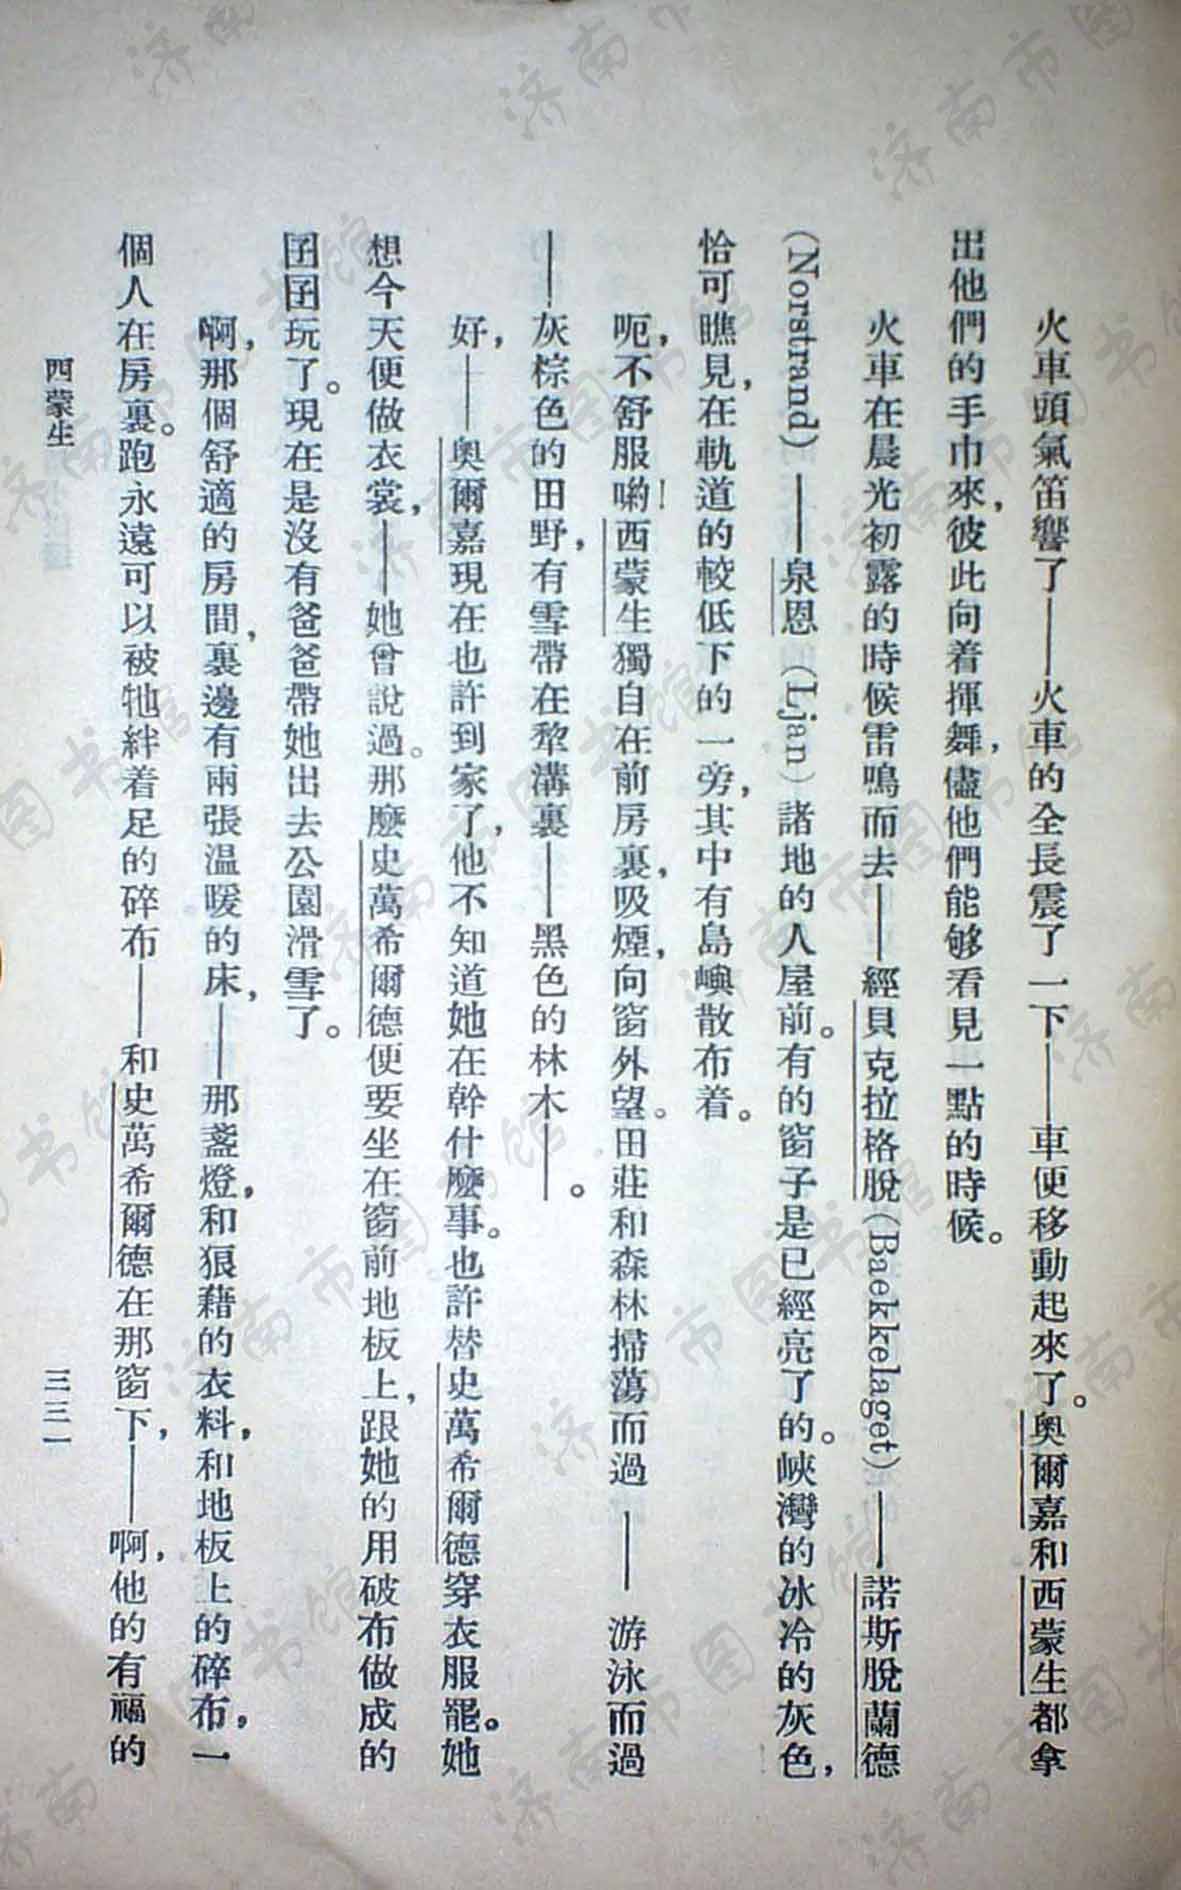 火車頭氣笛響了——火車的全長震了一下——車便移動起來了。奧爾嘉和西蒙生都拿
出他們的手巾來，彼此向着揮舞，儘他們能够看見一點的時候。
火車在晨光初露的時候雷鳴而去——經貝克拉格脫(Baekkelaget)——諾斯脫蘭德
(Norstrand)——泉恩(Ljan)諸地的人屋前。有的窗子是已經亮了的。峽灣的冰冷的灰色，
恰可瞧見，在軌道的較低下的一旁，其中有島嶼散布着。
呃，不舒服喲！西蒙生獨自在前房裏，吸煙，向窗外望。田莊和森林掃蕩而過——游泳而過
——灰棕色的田野，有雪帶在犂溝裏——黑色的林木——。
好，——奧爾嘉現在也許到家了，他不知道她在幹什麽事。也許替史萬希爾德穿衣服罷。她
想今天便做衣裳，——她曾說過。那麽史萬希爾德便要坐在窗前地板上，跟她的用破布做成的
囝囝玩了。現在是沒有爸爸帶她出去公園滑雪了。
啊，那個舒適的房間，裏邊有兩張温暖的床，——那盞燈，和狼藉的衣料，和地板上的碎布，一
個人在房裏。跑永遠可以被牠絆着足的碎布——和史萬希爾德在那窗下，——啊，他的有福的
四蒙生
三三一
济南市图书馆